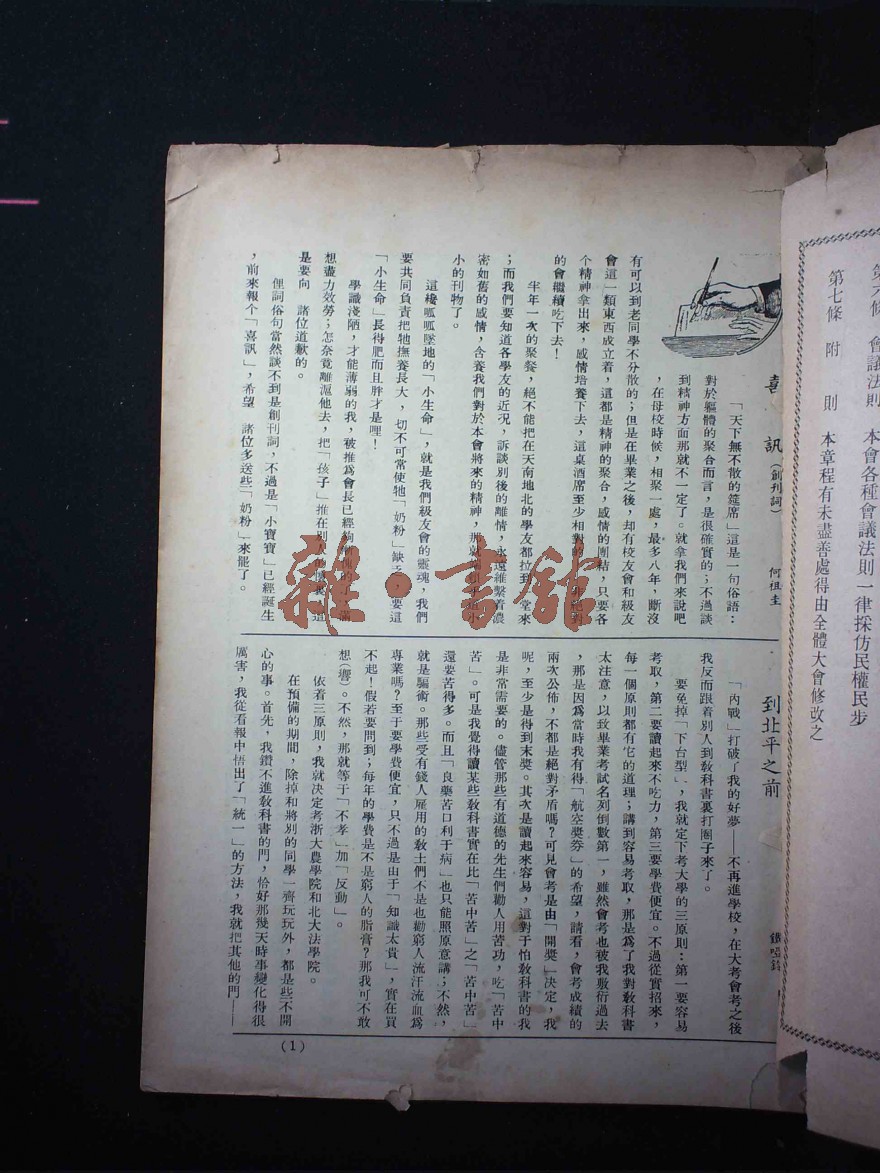 第六條　會議法則　本會各種會議法則一律採仿民權民步
第七條　附　　則　本章程有未盡善處得由全體大會修改之
喜訊（創刊詞）
何祖圭
「天下無不散的筵席」這是一句俗語：
對於軀體的聚合而言，是很確實的；不過談
到精神方面那就不一定了。就拿我們來說吧
，在母校時候，相聚一處，最多八年，斷沒
有可以到老同學不分散的；但是在畢業之後，却有校友會和級友
會這一類東西成立着，這都是精神的聚合，感情的團結，只要各
个精神拿出來，感情培養下去，這桌酒席至少相對的
的會繼續吃下去！
半年一次的聚餐，絕不能把在天南地北的學友都拉到一堂來
；而我們要知道各學友的近況，訴談別後的離情，永遠維繫着濃
密如舊的感情，含養我們對於本會將來的精神，那就
小的刊物了。
這樣呱呱墜地的「小生命」，就是我們級友會的靈魂，我們
要共同負責把牠撫養長大，切不可常使牠「奶粉」缺乏，要這
「小生命」長得肥而且胖才是哩！
學識淺陋，才能薄弱的我，被推爲會長已經夠慚愧的了，滿
想盡力效勞；怎奈竟離滬他去，把「孩子」推在別人的懷裏，這
是要向　諸位道歉的。
俚詞俗句當然談不到是創刊詞，不過是「小寶寶」已經誕生
，前來報个「喜訊」，希望　諸位多送些「奶粉」來罷了。
到北平之前
「內戰」打破了我的好夢——不再進學校，在大考會考之後
我反而跟着別人到教科書裏打圈子來了。
要免掉「下台型」，我就定下考大學的三原則：第一要容易
考取，第二要讀起來不吃力，第三要學費便宜。不過從實招來，
每一個原則都有它的道理；講到容易考取，那是爲了我對教科書
太注意，以致畢業考試名列倒數第一，雖然會考也被我敷衍過去
，那是因為當時我有得「航空奬券」的希望，請看，會考成績的
兩次公佈，不都是絕對矛盾嗎？可見會考是由「開奬」決定，我
呢，至少是得到末奬。其次是讀起來容易，這對于怕教科書的我
是非常需要的。儘管那些有道德的先生們勸人用苦功，吃「苦中
苦」。可是我覺得讀某些教科書實在比「苦中苦」之「苦中苦」
還要苦得多。而且「良藥苦口利于病」也只能照原意講；不然，
就是騙術。那些受有錢人雇用的教士們不是也勸窮人流汗流血爲
專業嗎？至于要學費便宜，只不過是由于「知識太貴」，實在買
不起！假若要問到；每年的學費是不是窮人的脂膏？那我可不敢
想（嚮）。不然，那就等于「不孝」加「反動」。
依着三原則，我就決定考浙大農學院和北大法學院。
在預備的期間，除掉和將別的同學一齊玩玩外，都是些不開
心的事。首先，我鑽不進教科書的門，恰好那幾天時事變化得很
厲害，我從看報中悟出了「統一」的方法，我就把其他的門——
（1）
雜·書館